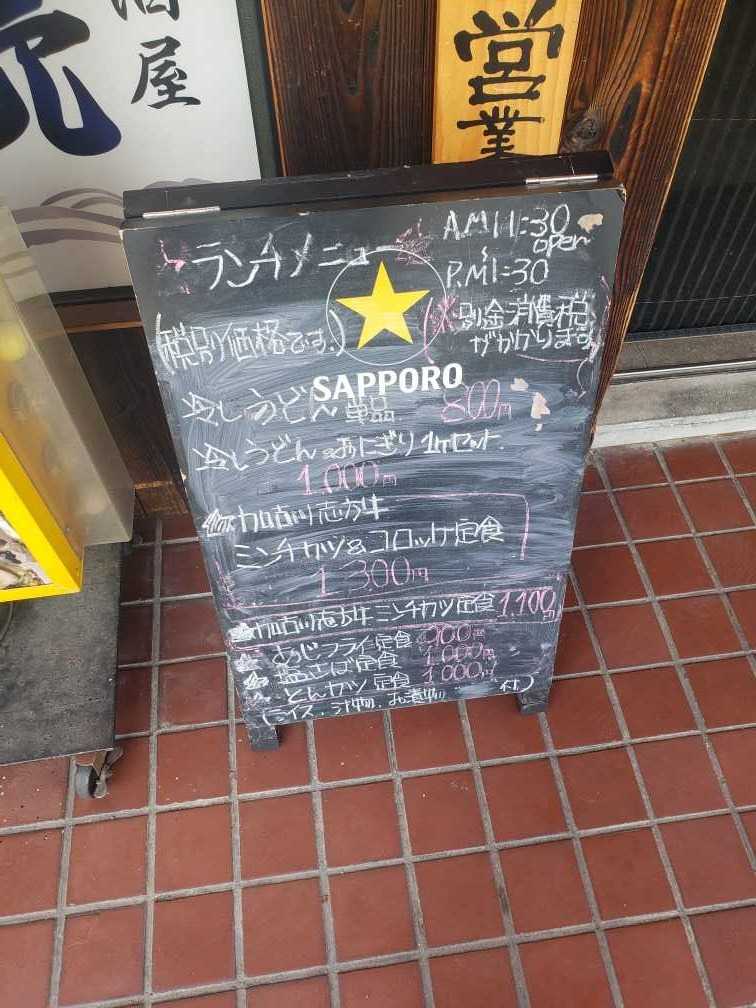 酒屋
営業
ランチメニュー
AM11:30
open
〜
P.M1:30
(税別価格です.)
(※別途消費税
がかかります)
SAPPORO
冷しうどん単品 800円
冷しうどん&おにぎり1ケセット.
1,000円
加古川志方牛
ミンチカツ&コロッケ定食
1,300円
加古川志方牛ミンチカツ定食 1,100円
あじフライ定食 900円
塩さば定食 1,000円
とんカツ定食 1,000円
(ライス.汁物.お漬物 付)